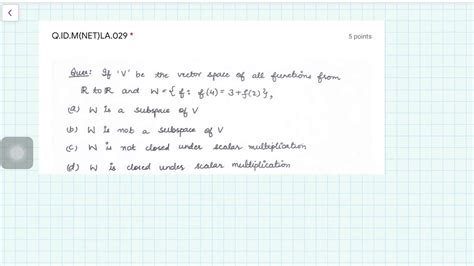 Q.ID.M(NET)LA.029 *
5 points
Ques: If 'V' be the vector space of all functions from
ℝ to ℝ and W = { f : f(4) = 3 + f(2) },
(a) W is a subspace of V
(b) W is not a subspace of V
(c) W is not closed under scalar multiplication
(d) W is closed under scalar multiplication